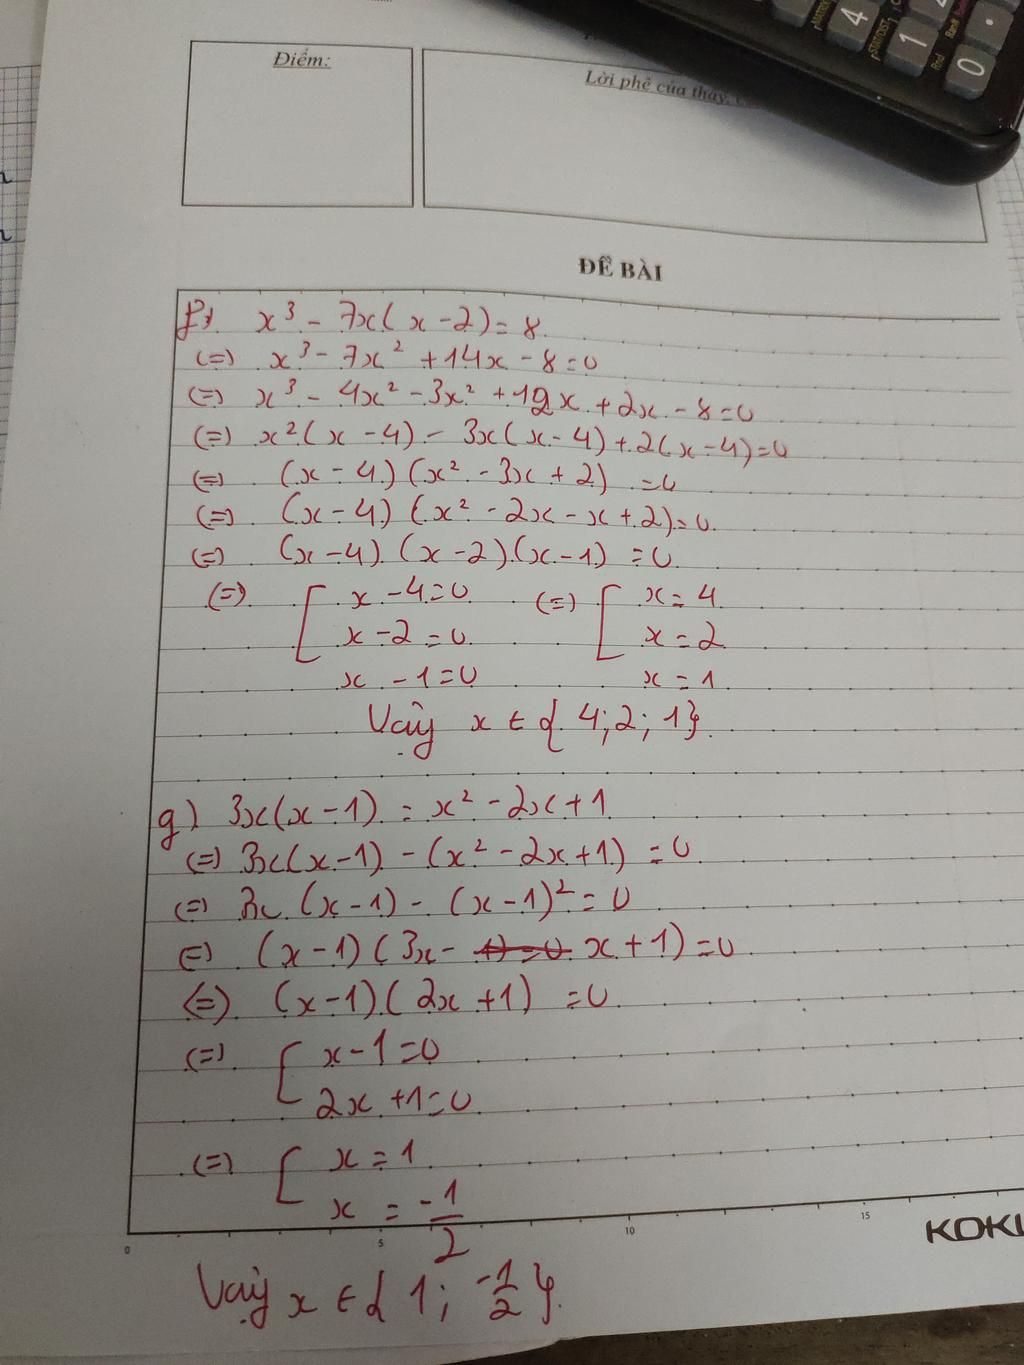 Điểm:
Lời phê của thầy,
ĐỀ BÀI
f) x³ - 7x(x - 2) = 8
(=) x³ - 7x² + 14x - 8 = 0
(=) x³ - 4x² - 3x² + 12x + 2x - 8 = 0
(=) x²(x - 4) - 3x(x - 4) + 2(x - 4) = 0
(=) (x - 4)(x² - 3x + 2) = 0
(=) (x - 4)(x² - 2x - x + 2) = 0
(=) (x - 4)(x - 2)(x - 1) = 0
(=) [ x - 4 = 0 (=) [ x = 4
x - 2 = 0 x = 2
x - 1 = 0 x = 1
Vậy x ∈ { 4; 2; 1}
g) 3x(x - 1) = x² - 2x + 1
(=) 3x(x - 1) - (x² - 2x + 1) = 0
(=) 3x (x - 1) - (x - 1)² = 0
(=) (x - 1)(3x - x + 1) = 0
(=) (x - 1)(2x + 1) = 0
(=) [ x - 1 = 0
2x + 1 = 0
(=) [ x = 1
x = -1/2
0 5 10 15
KOKU
Vậy x ∈ { 1; -1/2 }.